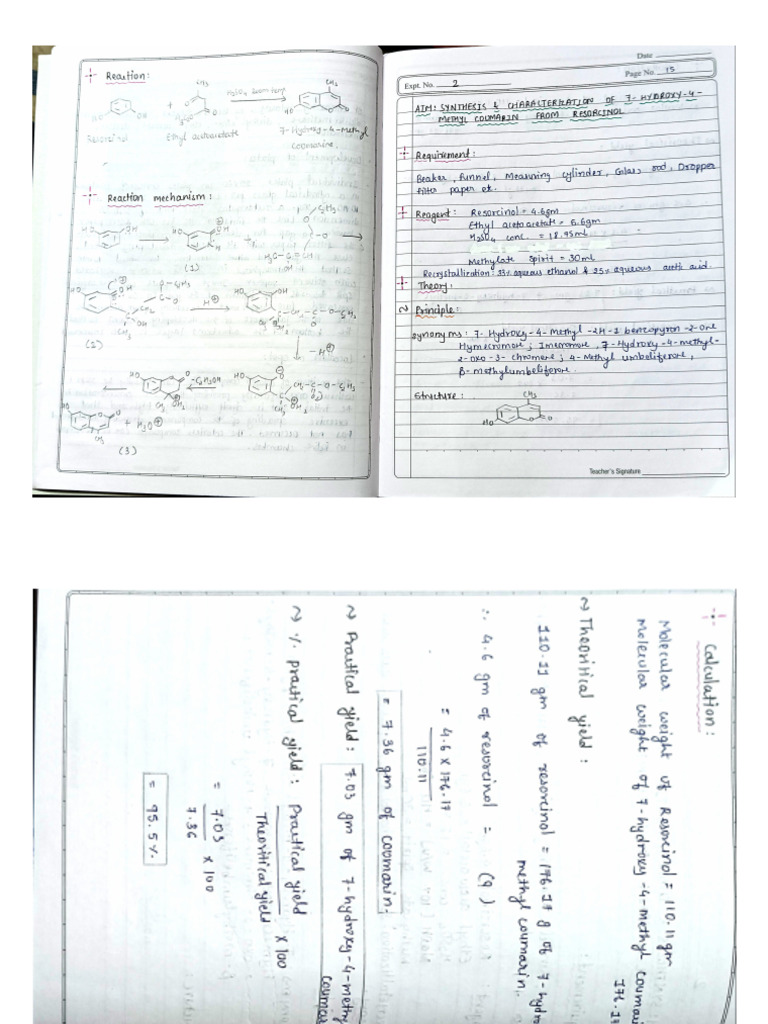 Reaction:
CH3
HO OH + H2SO4 Room temp CH3
HO O O
Resorcinol Ethyl acetoacetate 7-Hydroxy-4-Methyl
Coumarine.
Reaction mechanism:
(1)
H⊕
(1)
-H⊕
-C2H5OH
+ H3O⊕
(3)
Date
Expt. No. 2
Page No. 15
AIM: SYNTHESIS & CHARACTERIZATION OF 7-HYDROXY-4-
METHYL COUMARIN FROM RESORCINOL
Requirement:
Beaker, Funnel, Measuring cylinder, Glass rod, Dropper
filter paper etc.
Reagent: Resorcinol = 4.6gm
Ethyl acetoacetate = 6.6gm
H2SO4 conc. = 18.45ml
Methylate Spirit = 30ml
Recrystallization: 33% aqueous ethanol & 25% aqueous acetic acid.
Theory:
~ Principle:
Synonyms: 7-Hydroxy-4-Methyl-2H-1 benzopyron-2-one
Hymecromone; Imecromone, 7-Hydroxy-4-methyl-
2-oxo-3-chromene; 4-Methyl umbeliferone,
β-methylumbeliferone.
Structure:
CH3
HO O O
Teacher's Signature
Calculation:
Molecular weight of Resorcinol = 110.11 gm
Molecular weight of 7-hydroxy-4-methyl
176.1
~ Theoritical yield:
110.11 gm of resorcinol = 176.17 g of 7-hydro
methyl coumarin.
∴ 4.6 gm of resorcinol = (9)
= 4.6 X 176.17
110.11
= 7.36 gm of coumarin.
~ Practical yield: 7.03 gm of 7-hydroxy-4-methy
~ % practical yield: Practical yield X 100
Theoritical yield
= 7.03 X 100
7.36
= 95.5%.